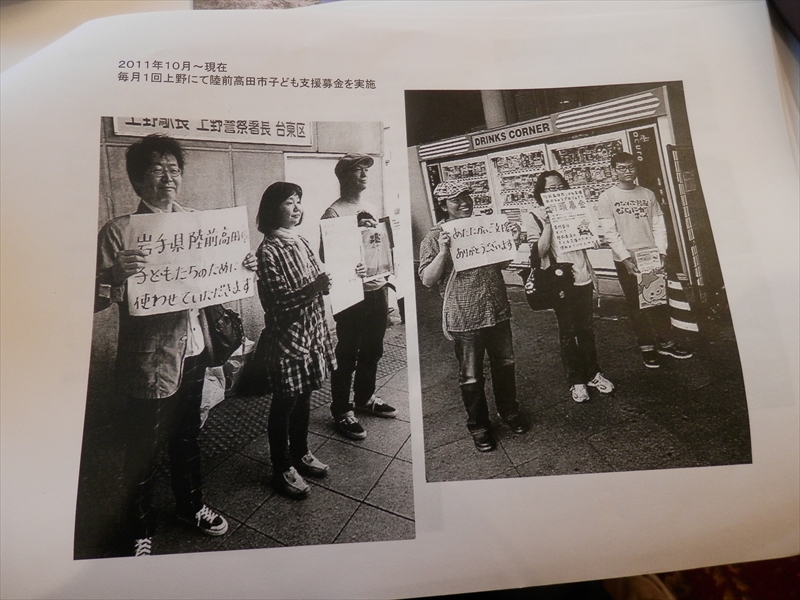 2011年10月～現在
毎月1回上野にて陸前高田市子ども支援募金を実施
上野駅長 上野警察署長 台東区
岩手県陸前高田
子どもたちのために
使わせていただきます
DRINKS CORNER
あたたかいご支援
ありがとうございます